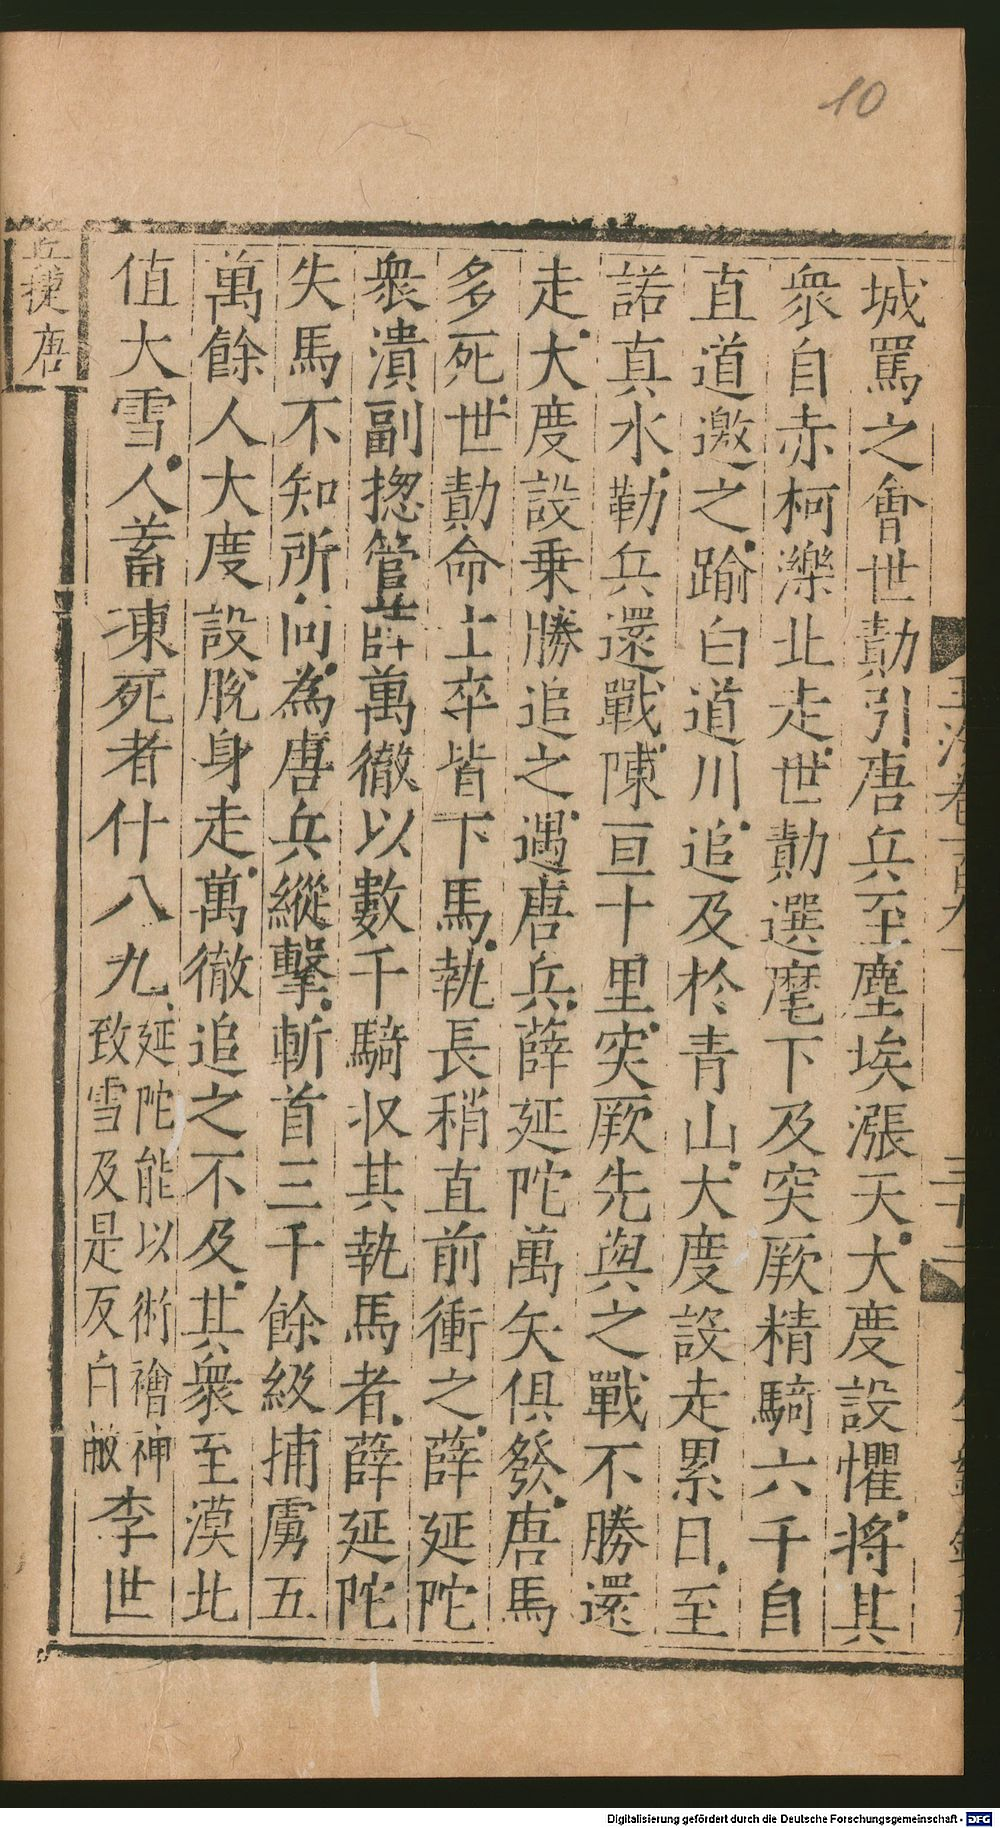 10
兵捷唐
城罵之會世勣引唐兵至塵埃漲天大度設懼將其
衆自赤柯濼北走世勣選麾下及突厥精騎六千自
直道邀之踰白道川追及於青山大度設走累日至
諾真水勒兵還戰陳亘十里突厥先與之戰不勝還
走大度設乗勝追之遇唐兵薛延陀萬矢俱發唐馬
多死世勣命士卒皆下馬執長矟直前衝之薛延陀
衆潰副揔管薛萬徹以數千騎収其執馬者薛延陀
失馬不知所向為唐兵縱擊斬首三千餘級捕虜五
萬餘人大度設脫身走萬徹追之不及其衆至漠北
值大雪人蓄凍死者什八九
延陀能以術禬神
致雪及是反自敝
李世
玉海卷一百九十
Digitalisierung gefördert durch die Deutsche Forschungsgemeinschaft - DFG